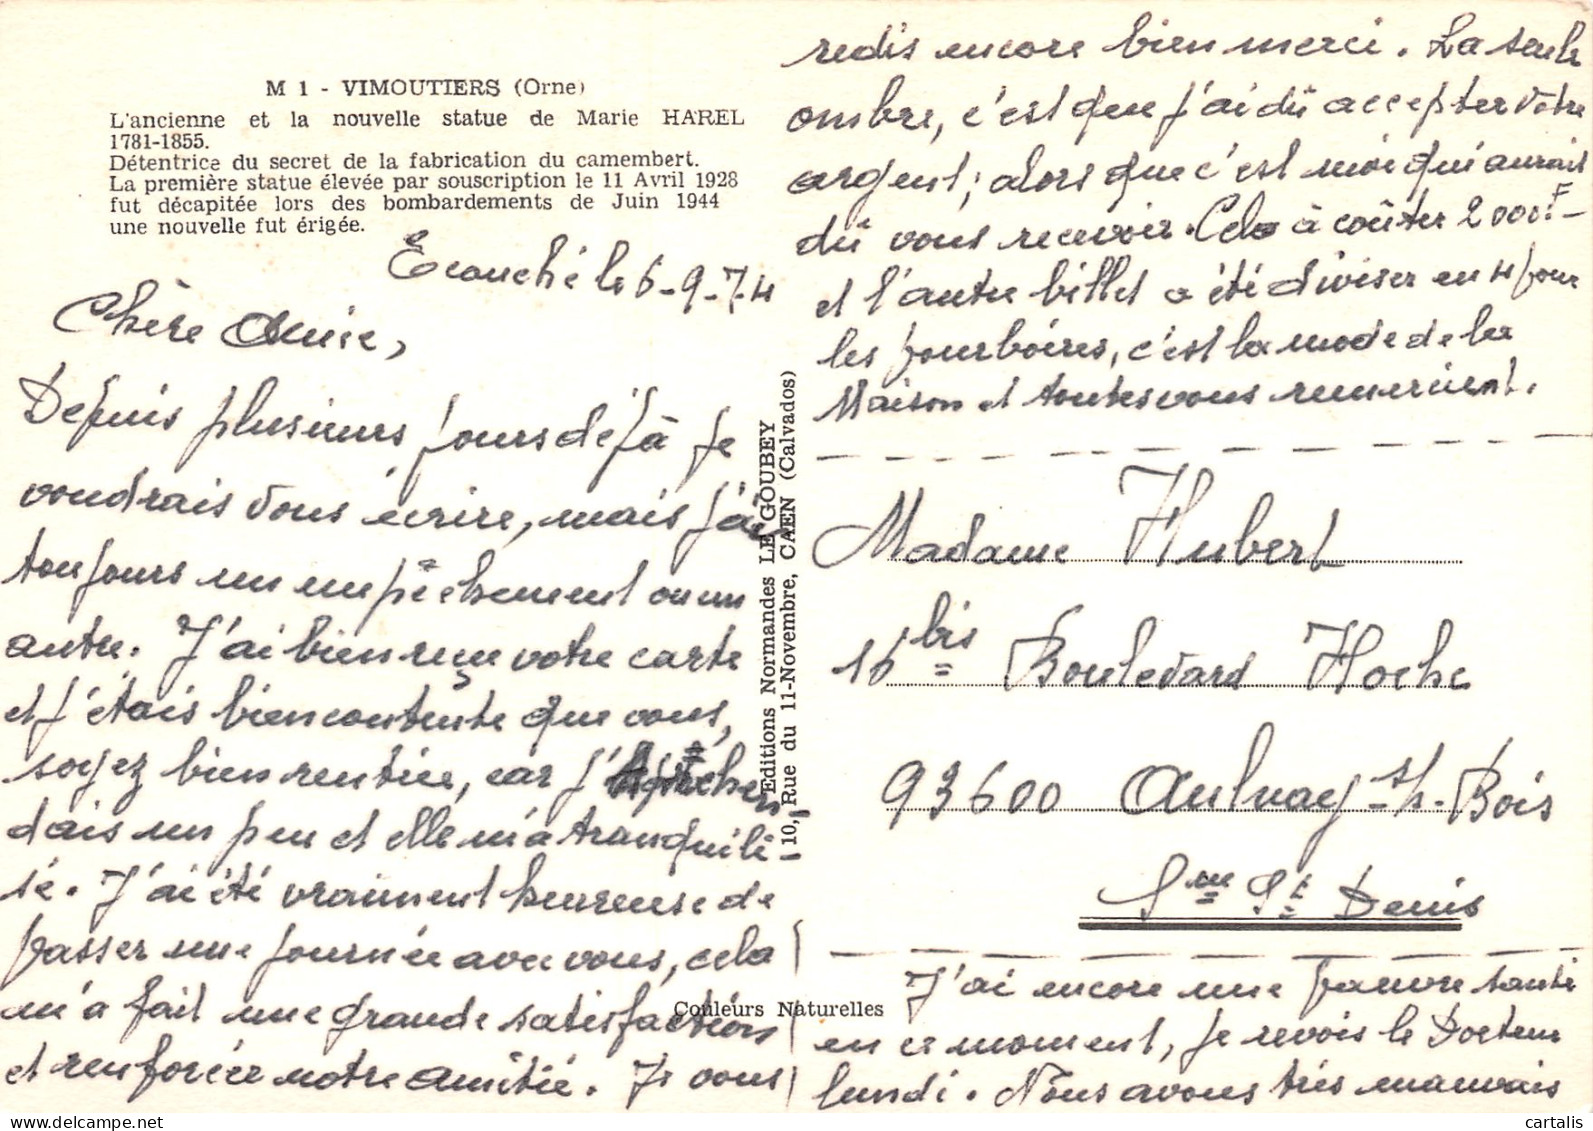 M 1 - VIMOUTIERS (Orne)
L'ancienne et la nouvelle statue de Marie HAREL
1781-1855.
Détentrice du secret de la fabrication du camembert.
La première statue élevée par souscription le 11 Avril 1928
fut décapitée lors des bombardements de Juin 1944
une nouvelle fut érigée.
Ecouché le 6-9-74
Chère Amie,
Depuis plusieurs jours déjà je
voudrais vous écrire, mais j'ai
toujours un empêchement ou un
autre. J'ai bien reçue votre carte
et j'étais bien contente que vous,
soyez bien rentrée, car j'
dais un peu et elle m'a tranquili-
sé. J'ai été vraiment heureuse de
passer une journée avec vous, cela
m'a fait une grande satisfaction
et renforcée notre amitié. Je vous
redis encore bien merci. La seule
ombre, c'est que j'ai dû accepter votre
argent; alors que c'est moi qui aurait
dû vous recevoir. Cela à coûter 2000F-
et l'autre billet a été diviser en 4 pour
les pourboires, c'est la mode de la
Maison et toutes vous remercient.
Editions Normandes LE GOUBEY
10, Rue du 11-Novembre, CAEN (Calvados)
Madame Hubert
16 bis Boulevard Hoche
93600 Aulnay-s/-Bois
Sne St Denis
J'ai encore une pauvre santé
en ce moment, je revois le Docteur
lundi. Nous avons très mauvais
Couleurs Naturelles
cartalis